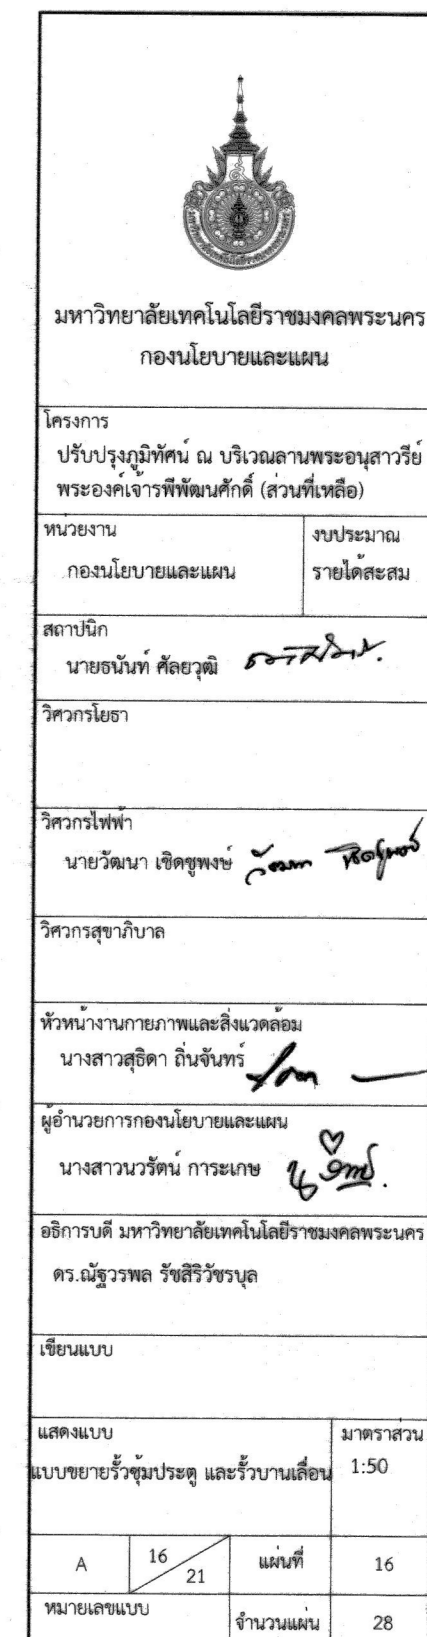 มหาวิทยาลัยเทคโนโลยีราชมงคลพระนคร
กองนโยบายและแผน
โครงการ
ปรับปรุงภูมิทัศน์ ณ บริเวณลานพระอนุสาวรีย์
พระองค์เจ้ารพีพัฒนศักดิ์ (ส่วนที่เหลือ)
หน่วยงาน
กองนโยบายและแผน
งบประมาณ
รายได้สะสม
สถาปนิก
นายธนันท์ ศัลยวุฒิ
วิศวกรโยธา
วิศวกรไฟฟ้า
นายวัฒนา เชิดชูพงษ์
วิศวกรสุขาภิบาล
หัวหน้างานกายภาพและสิ่งแวดล้อม
นางสาวสุธิดา ถิ่นจันทร์
ผู้อำนวยการกองนโยบายและแผน
นางสาวนวรัตน์ การะเกษ
อธิการบดี มหาวิทยาลัยเทคโนโลยีราชมงคลพระนคร
ดร.ณัฐวรพล รัชสิริวัชรบุล
เขียนแบบ
แสดงแบบ
แบบขยายรั้วซุ้มประตู และรั้วบานเลื่อน
มาตราส่วน
1:50
A 16 21 แผ่นที่ 16
หมายเลขแบบ จำนวนแผ่น 28